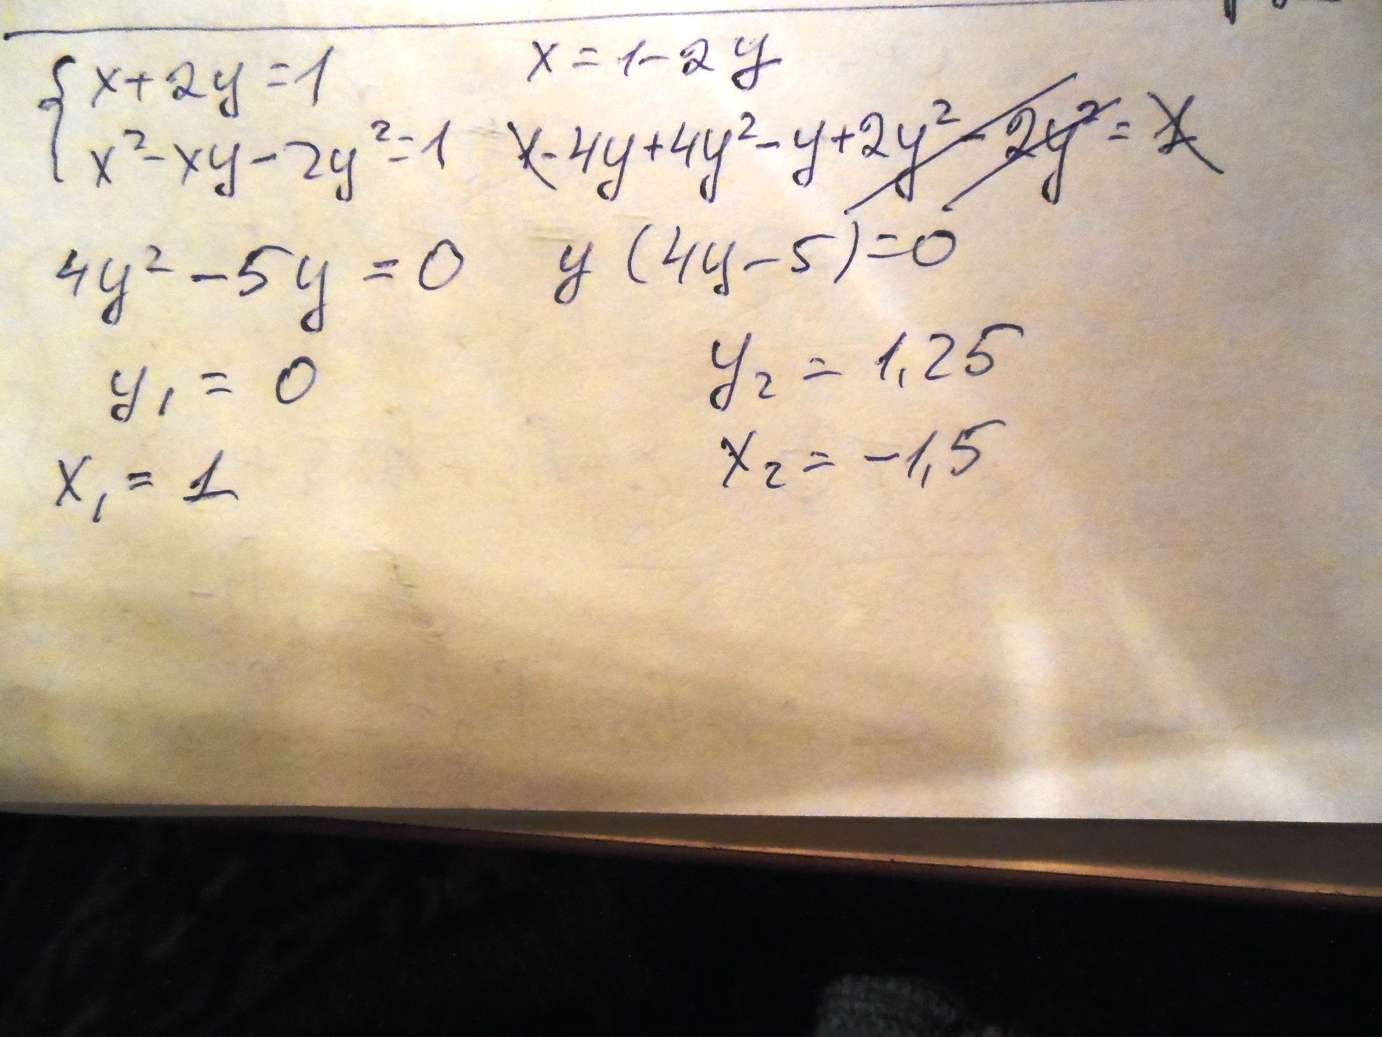 x+2y=1 x=1-2y
x²-xy-2y²=1 x-4y+4y²-y+2y²-2y²=1
4y²-5y=0 y(4y-5)=0
y₁=0 y₂=1,25
x₁=1 x₂=-1,5